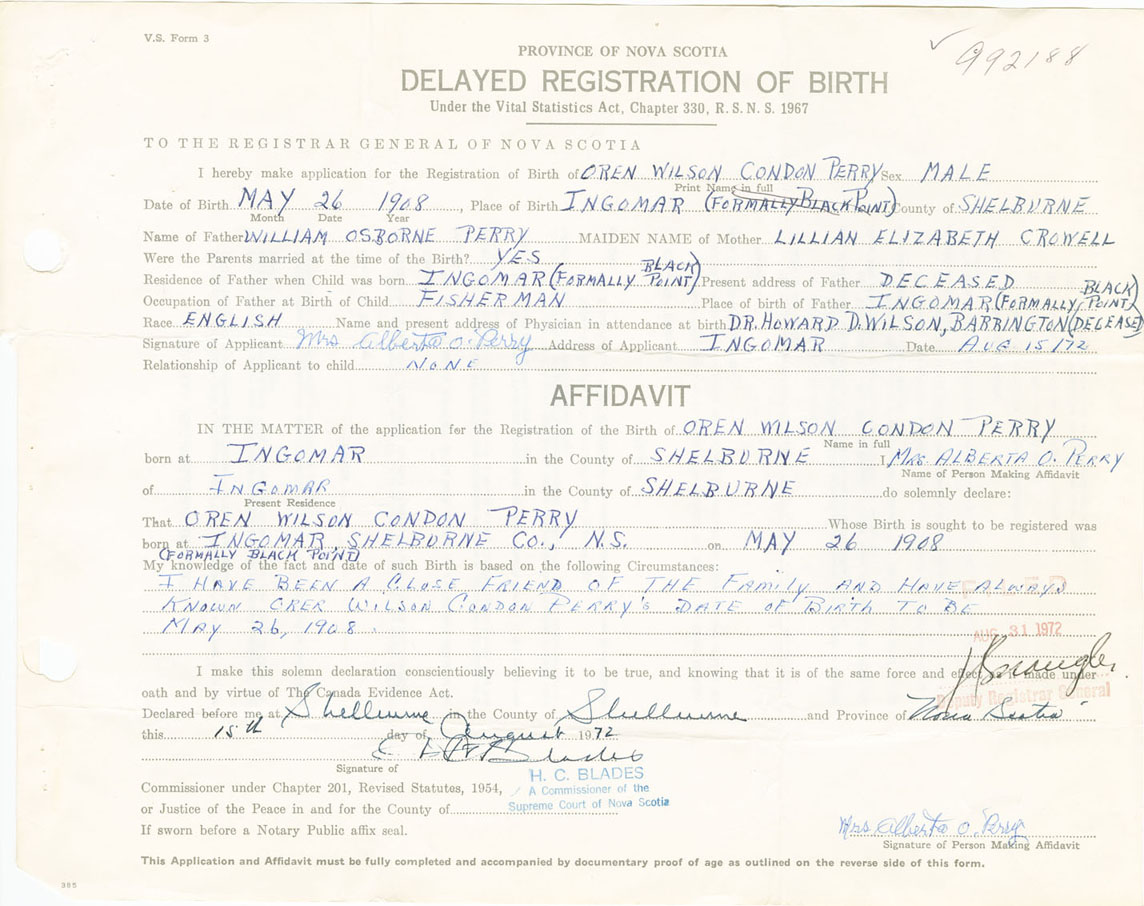 V.S. Form 3
992188
PROVINCE OF NOVA SCOTIA
DELAYED REGISTRATION OF BIRTH
Under the Vital Statistics Act, Chapter 330, R.S.N.S. 1967
TO THE REGISTRAR GENERAL OF NOVA SCOTIA
I hereby make application for the Registration of Birth of OREN WILSON CONDON PERRY Sex MALE
Print Name in full
Date of Birth MAY 26 1908, Place of Birth INGOMAR (FORMALLY BLACK POINT) County of SHELBURNE
Month Date Year
Name of Father WILLIAM OSBORNE PERRY MAIDEN NAME of Mother LILLIAN ELIZABETH CROWELL
Were the Parents married at the time of the Birth? YES
Residence of Father when Child was born INGOMAR (FORMALLY BLACK POINT) Present address of Father DECEASED
Occupation of Father at Birth of Child FISHERMAN Place of birth of Father INGOMAR (FORMALLY BLACK POINT)
Race ENGLISH Name and present address of Physician in attendance at birth DR. HOWARD D. WILSON, BARRINGTON (DECEASED)
Signature of Applicant Mrs Alberta O. Perry Address of Applicant INGOMAR Date AUG 15/72
Relationship of Applicant to child NONE
AFFIDAVIT
IN THE MATTER of the application for the Registration of the Birth of OREN WILSON CONDON PERRY
Name in full
born at INGOMAR in the County of SHELBURNE I MRS ALBERTA O. PERRY
Name of Person Making Affidavit
of INGOMAR in the County of SHELBURNE do solemnly declare:
Present Residence
That OREN WILSON CONDON PERRY Whose Birth is sought to be registered was
born at INGOMAR, SHELBURNE CO., N.S. on MAY 26 1908
(FORMALLY BLACK POINT)
My knowledge of the fact and date of such Birth is based on the following Circumstances:
I HAVE BEEN A CLOSE FRIEND OF THE FAMILY AND HAVE ALWAYS
KNOWN ORER WILSON CONDON PERRY'S DATE OF BIRTH TO BE
MAY 26, 1908.
AUG 31 1972
I make this solemn declaration conscientiously believing it to be true, and knowing that it is of the same force and effect as if made under
oath and by virtue of The Canada Evidence Act.
Deputy Registrar General
Declared before me at Shelburne in the County of Shelburne and Province of Nova Scotia
this 15th day of August 1972
Blades
Signature of
H. C. BLADES
Commissioner under Chapter 201, Revised Statutes, 1954,
A Commissioner of the
or Justice of the Peace in and for the County of
Supreme Court of Nova Scotia
If sworn before a Notary Public affix seal.
Mrs Alberta O. Perry
Signature of Person Making Affidavit
This Application and Affidavit must be fully completed and accompanied by documentary proof of age as outlined on the reverse side of this form.
385